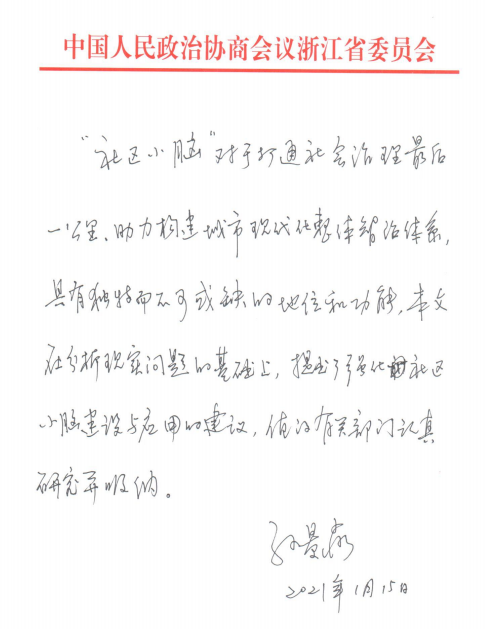 中国人民政治协商会议浙江省委员会
“社区小脑”对于打通社会治理最后
一公里、助力构建城市现代化整体智治体系,
具有独特而不可或缺的地位和功能,本文
在分析现实问题的基础上,提出了强化社区
小脑建设与应用的建议,值得有关部门认真
研究并吸纳。
孙景淼
2021年1月15日